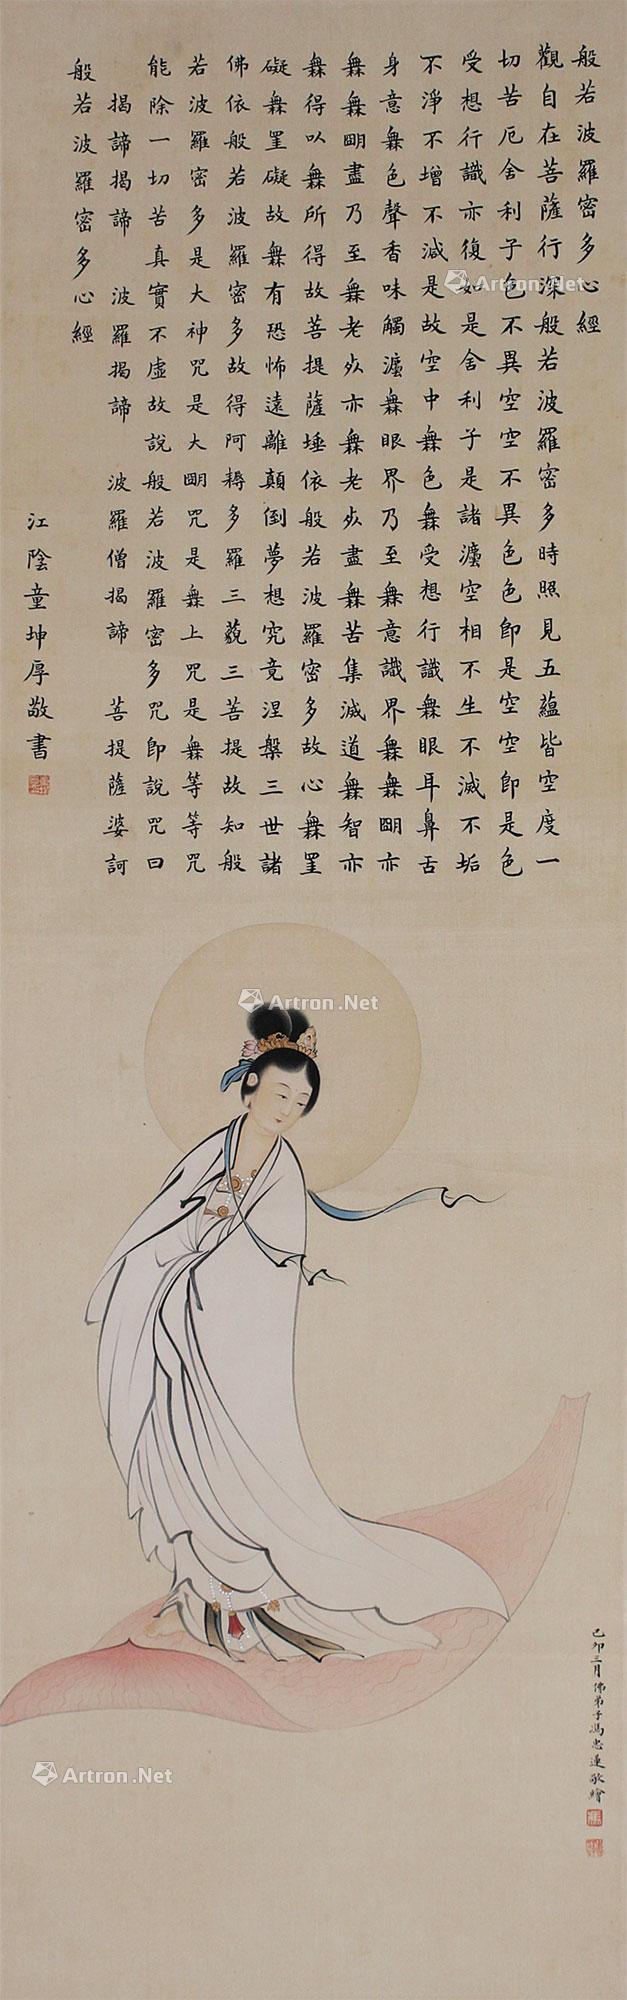 般若波羅密多心經
觀自在菩薩行深般若波羅密多時照見五蘊皆空度一
切苦厄舍利子色不異空空不異色色即是空空即是色
受想行識亦復如是舍利子是諸灋空相不生不滅不垢
不淨不增不減是故空中橆色橆受想行識橆眼耳鼻舌
身意橆色聲香味觸灋橆眼界乃至橆意識界橆橆朙亦
橆橆朙盡乃至橆老𣦸亦橆老𣦸盡橆苦集滅道橆智亦
橆得以橆所得故菩提薩埵依般若波羅密多故心橆罣
礙橆罣礙故橆有恐怖遠離顛倒夢想究竟涅槃三世諸
佛依般若波羅密多故得阿耨多羅三藐三菩提故知般
若波羅密多是大神咒是大朙咒是橆上咒是橆等等咒
能除一切苦真實不虛故說般若波羅密多咒即說咒曰
揭諦揭諦 波羅揭諦 波羅僧揭諦 菩提薩婆訶
般若波羅密多心經
江陰童坤厚敬書
己卯三月佛弟子馮忠蓮敬繪
Artron.Net
Artron.Net
Artron.Net